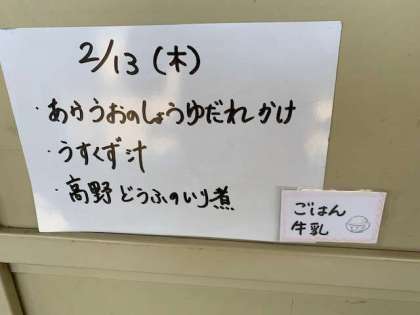 2/13(木)
・あかうおのしょうゆだれかけ
・うすくず汁
・高野どうふのいり煮
ごはん
牛乳